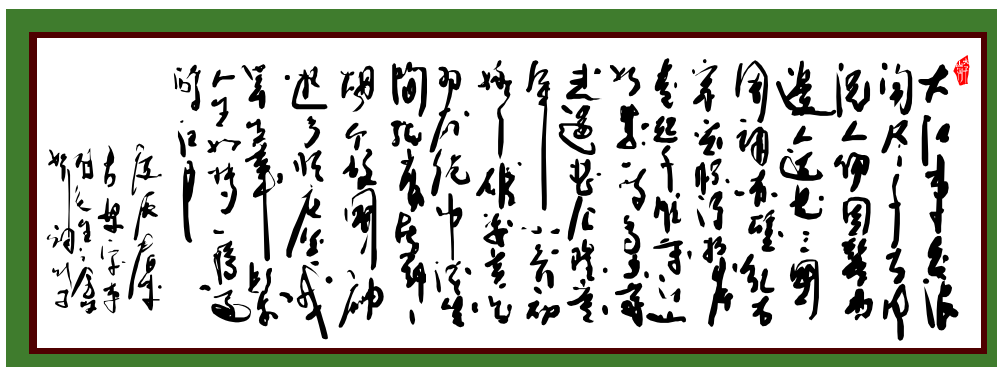 大江東去浪
淘尽千古風
流人物故壘西
邊人道是三國
周郎赤壁乱石
穿空驚濤拍岸
卷起千堆雪江山
如畫一時多少豪
杰遥想公瑾當
年小喬初
嫁了雄姿英發
羽扇綸巾談笑
間檣櫓灰飛
煙滅故國神
遊多情應笑我
早生華髮
人生如夢一樽還
酹江月
庚辰春